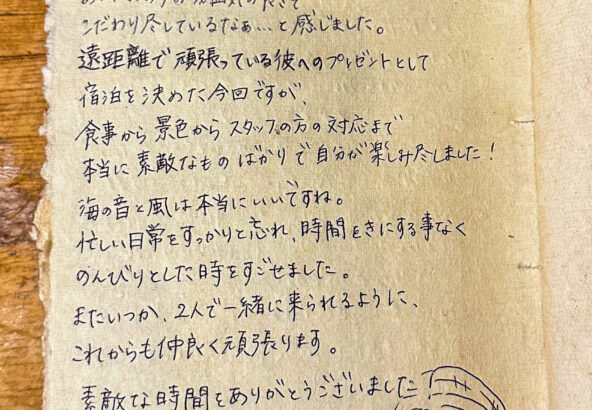 こだわり尽しているなぁ…と感じました。
遠距離で頑張っている彼へのプレゼントとして
宿泊を決めた今回ですが、
食事から景色からスタッフの方の対応まで
本当に素敵なものばかりで自分が楽しみ尽しました!
海の音と風は本当にいいですね。
忙しい日常をすっかりと忘れ、時間をきにする事なく
のんびりとした時をすごせました。
またいつか、2人で一緒に来られるように、
これからも仲良く頑張ります。
素敵な時間をありがとうございました!